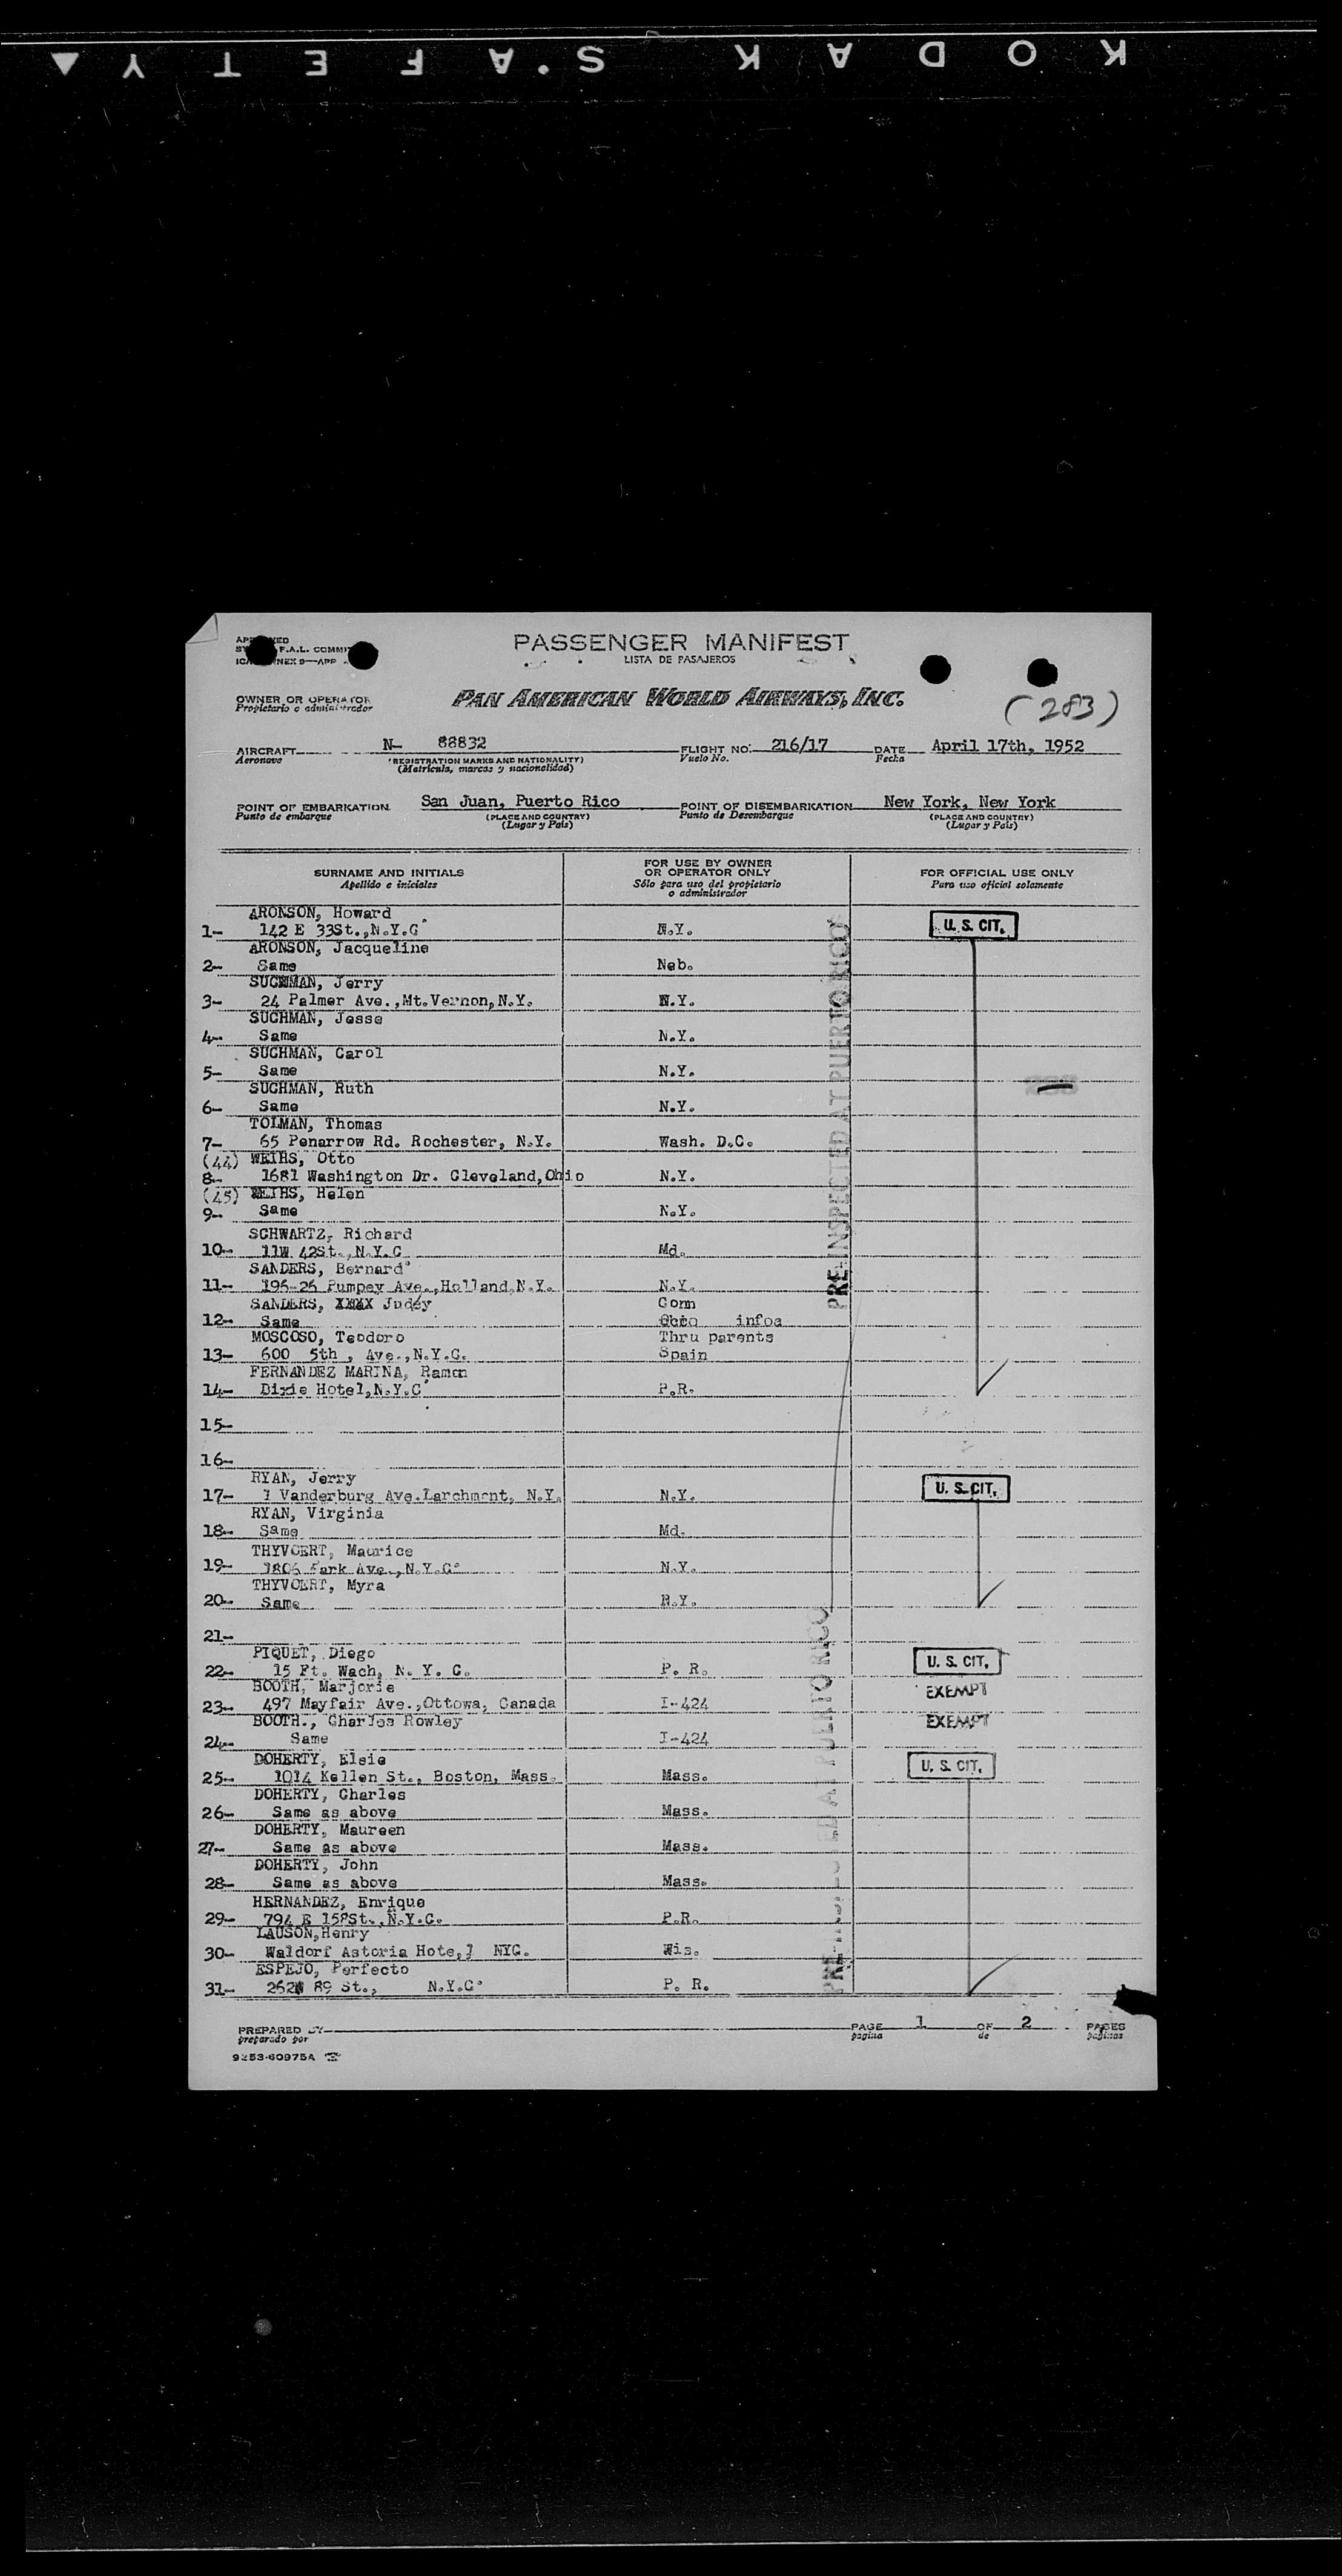 KODAK SAFETY
PASSENGER MANIFEST
LISTA DE PASAJEROS
F.A.L.
OWNER OR OPERATOR
Propietario o administrador
PAN AMERICAN WORLD AIRWAYS, INC.
(283)
AIRCRAFT N- 88832 FLIGHT NO. 216/17 DATE April 17th, 1952
Aeronave (REGISTRATION MARKS AND NATIONALITY) Vuelo No. Fecha
(Matrícula, marcas y nacionalidad)
POINT OF EMBARKATION San Juan, Puerto Rico POINT OF DISEMBARKATION New York, New York
Punto de embarque (PLACE AND COUNTRY) Punto de Desembarque (PLACE AND COUNTRY)
(Lugar y País) (Lugar y País)
SURNAME AND INITIALS FOR USE BY OWNER OR OPERATOR ONLY FOR OFFICIAL USE ONLY
Apellido e iniciales Sólo para uso del propietario o administrador Para uso oficial solamente
ARONSON, Howard
1- 142 E 33St.,N.Y.C N.Y. U. S. CIT.
ARONSON, Jacqueline
2- Same Neb.
SUCHMAN, Jerry
3- 24 Palmer Ave.,Mt.Vernon,N.Y. N.Y.
SUCHMAN, Jesse
4- Same N.Y.
SUCHMAN, Carol
5- Same N.Y.
SUCHMAN, Ruth
6- Same N.Y.
TOLMAN, Thomas
7- 65 Penarrow Rd. Rochester, N.Y. Wash. D.C.
(44) WEIHS, Otto
8- 1681 Washington Dr. Cleveland,Ohio N.Y.
(45) WEIHS, Helen
9- Same N.Y.
SCHWARTZ, Richard
10- 11W 42St.,N.Y.C Md.
SANDERS, Bernard
11- 196-26 Pumpey Ave.,Holland,N.Y. N.Y.
SANDERS, XXXX Judey Conn
12- Same infoa
MOSCOSO, Teodoro Thru parents
13- 600 5th , Ave.,N.Y.C. Spain
FERNANDEZ MARINA, Ramon
14- Dixie Hotel,N.Y.C P.R.
PRE-INSPECTED AT PUERTO RICO
15-
16-
RYAN, Jerry
17- 1 Vanderburg Ave.Larchmont, N.Y. N.Y. U. S. CIT.
RYAN, Virginia
18- Same Md.
THYVOERT, Maurice
19- 1806 Park Ave.,N.Y.C N.Y.
THYVOERT, Myra
20- Same N.Y.
21-
PIQUET, Diego
22- 15 Ft. Wach, N. Y. C. P. R. U. S. CIT.
BOOTH, Marjorie
23- 497 Mayfair Ave.,Ottowa, Canada I-424 EXEMPT
BOOTH., Charles Rowley
24- Same I-424 EXEMPT
DOHERTY, Elsie
25- 1014 Kellen St., Boston, Mass. Mass. U. S. CIT.
DOHERTY, Charles
26- Same as above Mass.
DOHERTY, Maureen
27- Same as above Mass.
DOHERTY, John
28- Same as above Mass.
HERNANDEZ, Enrique
29- 794 E 158St.,N.Y.C. P.R.
LAUSON,Henry
30- Waldorf Astoria Hote,l NYC. Wis.
ESPEJO, Perfecto
31- 89 St., N.Y.C P. R.
PRE-INSPECTED AT PUERTO RICO
PREPARED BY PAGE 1 OF 2 PAGES
preparado por página de páginas
9253-60975A